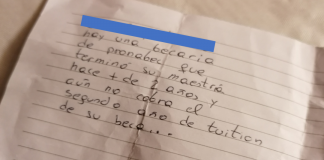 hay una becaria
de pronabec que
termino su maestria
hase + de 2 años y
aún no cobra el
segundo año de tuition
de su beca...